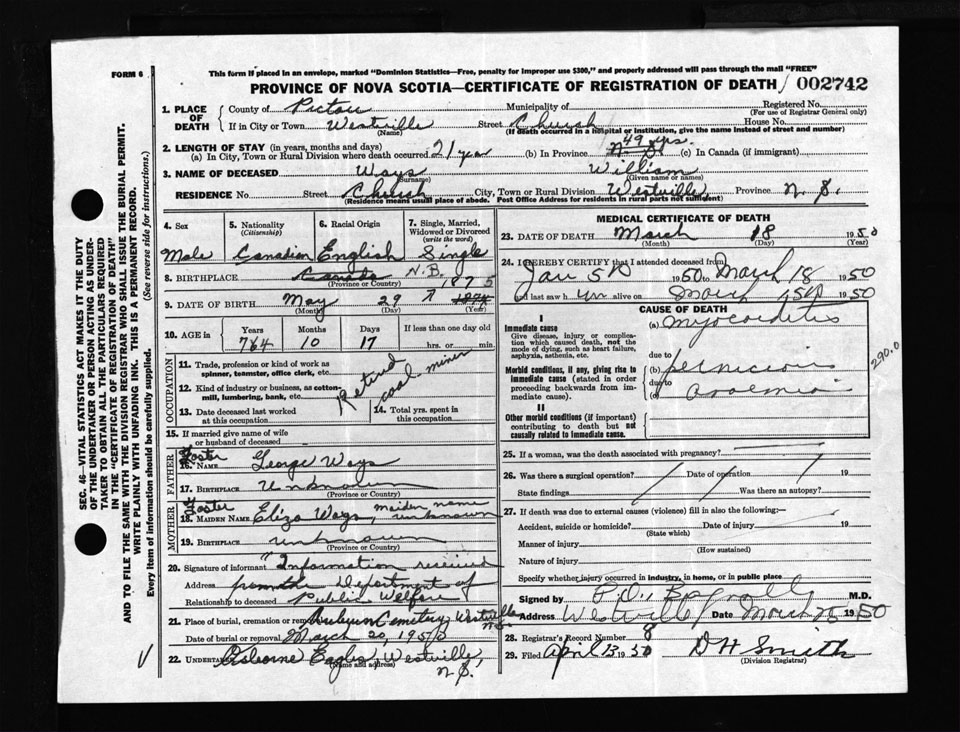 FORM 6
This form if placed in an envelope, marked "Dominion Statistics—Free, penalty for improper use $300," and properly addressed will pass through the mail "FREE"
PROVINCE OF NOVA SCOTIA—CERTIFICATE OF REGISTRATION OF DEATH 002742
SEC. 46—VITAL STATISTICS ACT MAKES IT THE DUTY
OF THE UNDERTAKER OR PERSON ACTING AS UNDER-
TAKER TO OBTAIN ALL THE PARTICULARS REQUIRED
IN THE "CERTIFICATE OF REGISTRATION OF DEATH"
AND TO FILE THE SAME WITH THE DIVISION REGISTRAR WHO SHALL ISSUE THE BURIAL PERMIT.
WRITE PLAINLY WITH UNFADING INK. THIS IS A PERMANENT RECORD.
Every item of information should be carefully supplied. (See reverse side for instructions.)
1. PLACE OF DEATH County of Pictou Municipality of Registered No.
(For use of Registrar General only)
If in City or Town Westville Street Church House No.
(Name) (If death occurred in a hospital or institution, give the name instead of street and number)
2. LENGTH OF STAY (in years, months and days)
(a) In City, Town or Rural Division where death occurred 21 year (b) In Province 49 yrs. (c) In Canada (if immigrant)
3. NAME OF DECEASED Ways William
(Surname) (Given name or names)
RESIDENCE No. Street Church City, Town or Rural Division Westville Province N.S.
(Residence means usual place of abode. Post Office Address for residents in rural parts not sufficient)
4. Sex 5. Nationality (Citizenship) 6. Racial Origin 7. Single, Married, Widowed or Divorced (write the word)
Male Canadian English Single
8. BIRTHPLACE Canada N.B.
(Province or Country)
1875
9. DATE OF BIRTH May 29
(Month) (Day) (Year)
10. AGE in Years Months Days If less than one day old
764 10 17 hrs. or min.
OCCUPATION
11. Trade, profession or kind of work as spinner, teamster, office clerk, etc.
12. Kind of industry or business, as cotton-mill, lumbering, bank, etc.
Retired coal miner
13. Date deceased last worked at this occupation
14. Total yrs. spent in this occupation
15. If married give name of wife or husband of deceased
FATHER
Foster
16. NAME George Ways
17. BIRTHPLACE Unknown
(Province or Country)
MOTHER
Foster
18. MAIDEN NAME Eliza Ways, maiden name unknown
19. BIRTHPLACE unknown
(Province or Country)
20. Signature of informant Information received
Address from the Department of
Relationship to deceased Public Welfare
21. Place of burial, cremation or removal Cemetery Westville N.S.
Date of burial or removal March 20, 1950
22. UNDERTAKER Osborne Eagles Westville, N.S.
(Name and address)
MEDICAL CERTIFICATE OF DEATH
23. DATE OF DEATH March 18 1950
(Month) (Day) (Year)
24. I HEREBY CERTIFY that I attended deceased from
Jan 5th 1950 to March 18 1950
and last saw him alive on March 15th 1950
CAUSE OF DEATH
I
Immediate cause
Give disease, injury or complication which caused death, not the mode of dying, such as heart failure, asphyxia, asthenia, etc.
(a) Myocarditis
due to
Morbid conditions, if any, giving rise to immediate cause (stated in order proceeding backwards from immediate cause).
(b) pernicious
due to
(c) anaemia
290.0
II
Other morbid conditions (if important) contributing to death but not causally related to immediate cause.
25. If a woman, was the death associated with pregnancy?
26. Was there a surgical operation? Date of operation 19
State findings Was there an autopsy?
27. If death was due to external causes (violence) fill in also the following:—
Accident, suicide or homicide? Date of injury 19
(State which)
Manner of injury
(How sustained)
Nature of injury
Specify whether injury occurred in industry, in home, or in public place
Signed by M.D.
Address Westville Date March 25 1950
28. Registrar's Record Number 8
29. Filed April 13 1950 D H Smith
(Division Registrar)